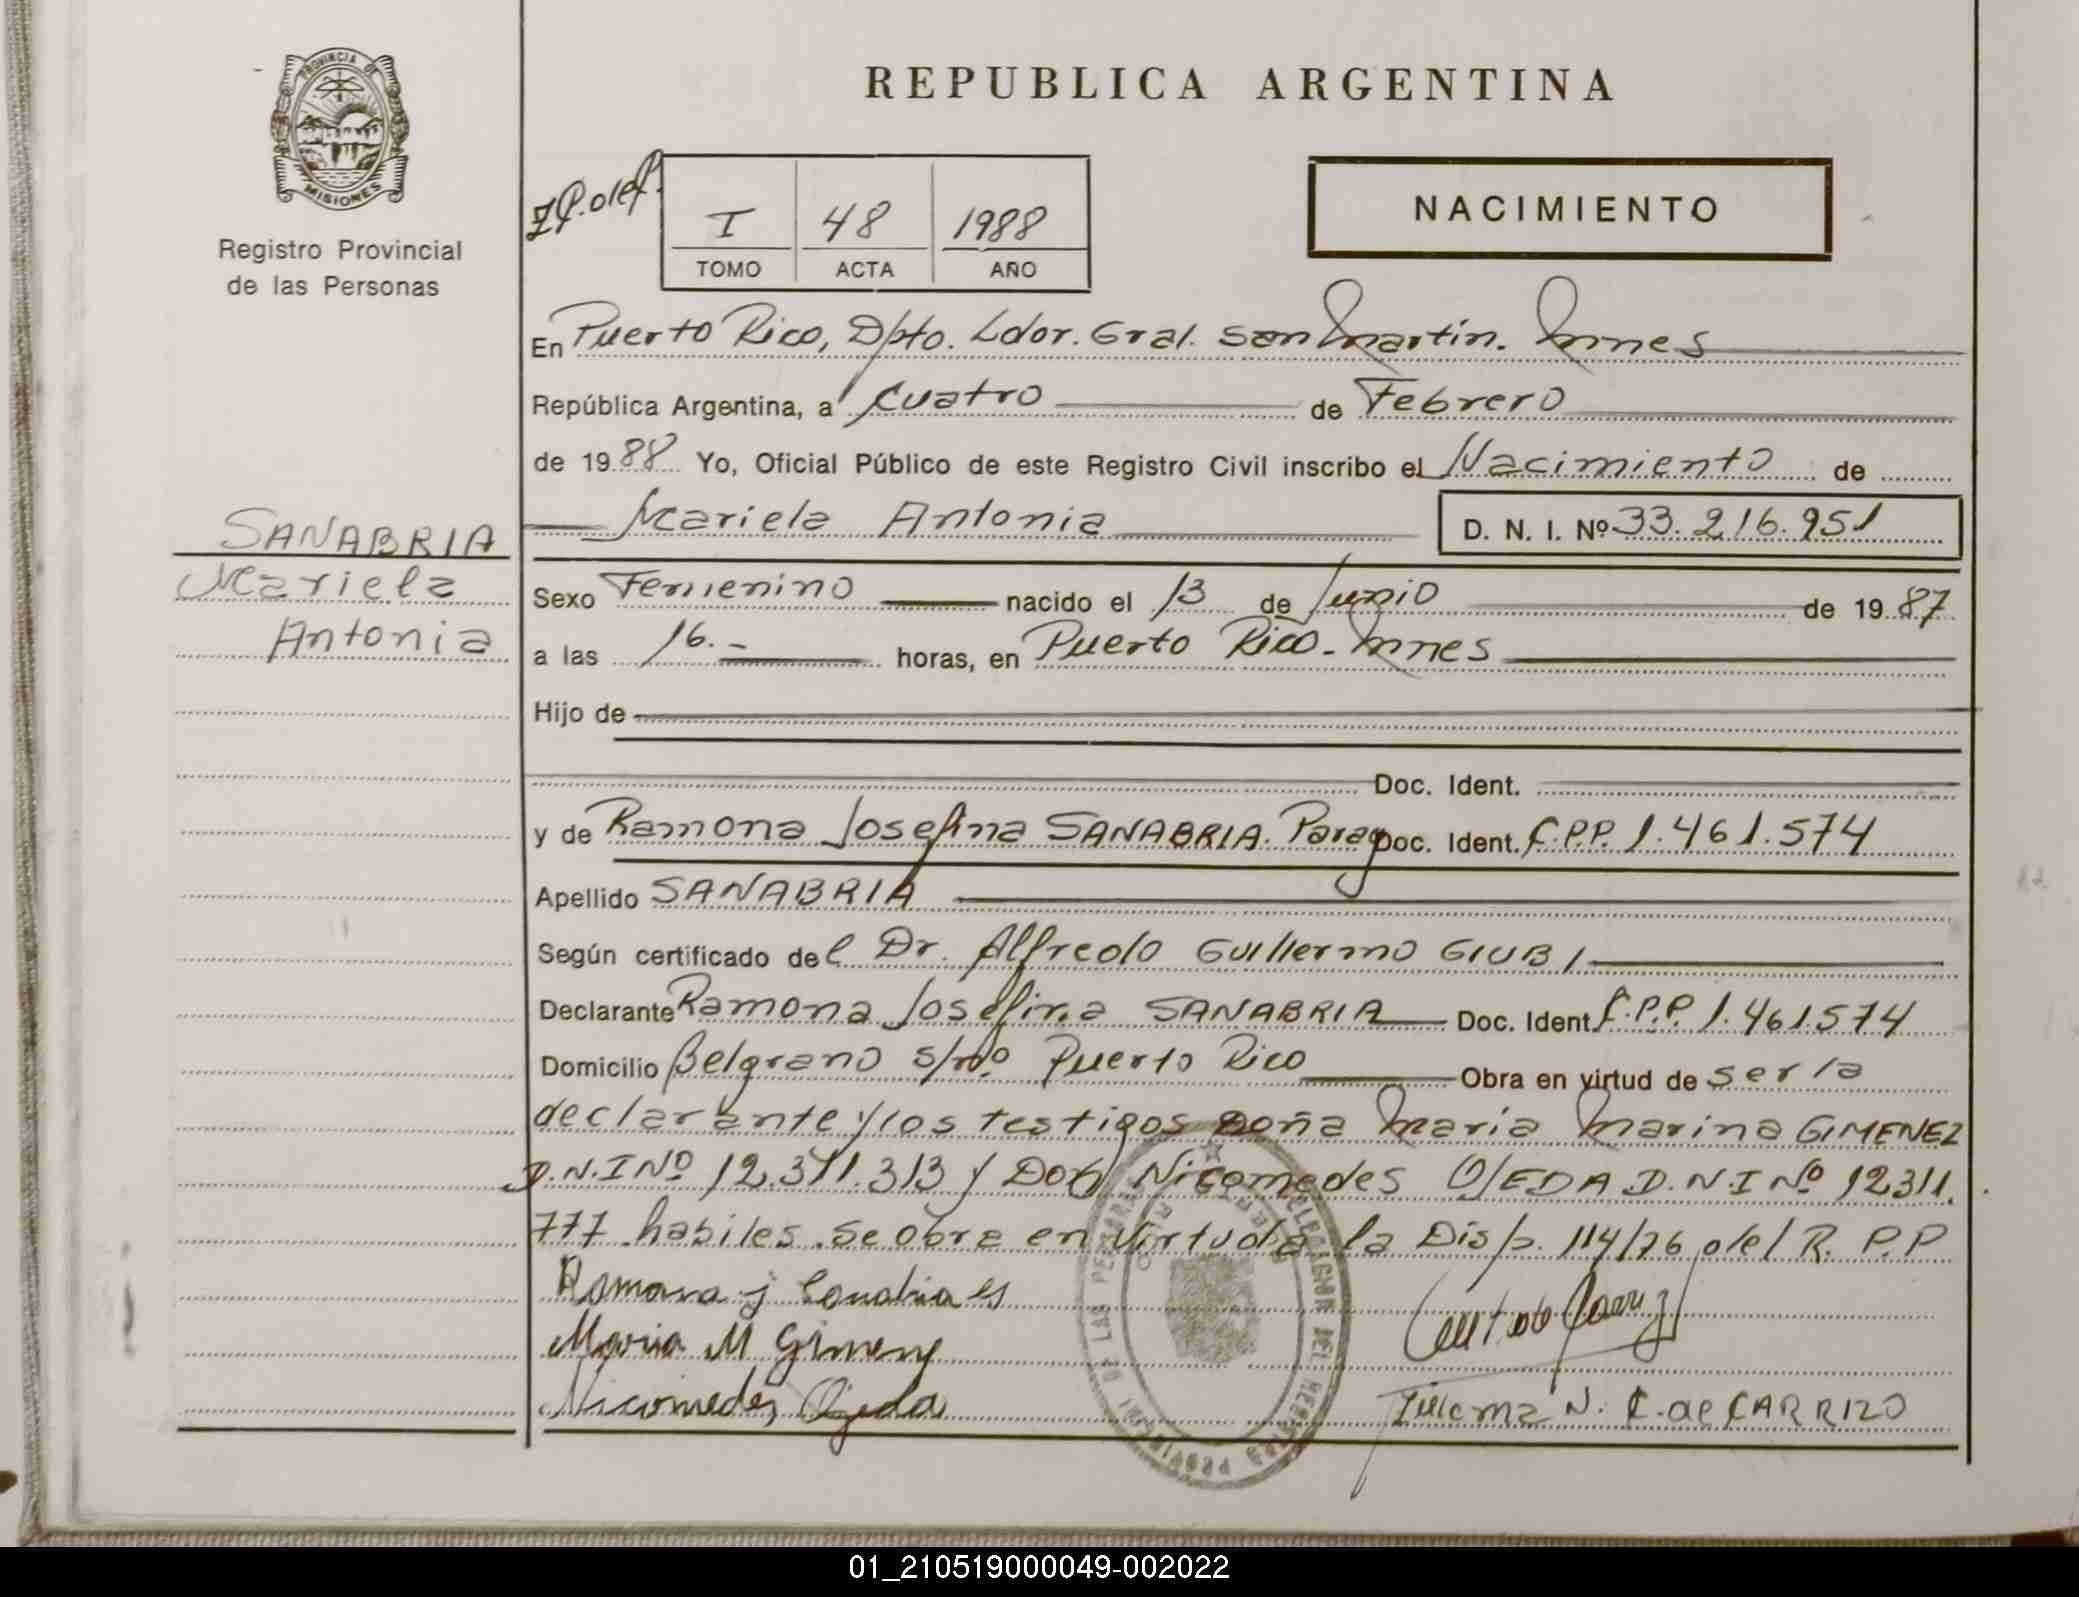 PROVINCIA DE
MISIONES
Registro Provincial
de las Personas
SANABRIA
Mariela
Antonia
REPUBLICA ARGENTINA
I 48 1988
TOMO ACTA AÑO
NACIMIENTO
En Puerto Rico, Dpto. Ldor. Gral. San Martín. Mnes
República Argentina, a cuatro de Febrero
de 1988 Yo, Oficial Público de este Registro Civil inscribo el Nacimiento de
Mariela Antonia D. N. I. Nº 33.216.951
Sexo Femenino nacido el 13 de Junio de 1987
a las 16.- horas, en Puerto Rico - Mnes
Hijo de
Doc. Ident.
y de Ramona Josefina SANABRIA. Parag Doc. Ident. C.P.P. 1.461.574
Apellido SANABRIA
Según certificado del Dr. Alfredo Guillermo GIUBI
Declarante Ramona Josefina SANABRIA Doc. Ident. C.P.P. 1.461.574
Domicilio Belgrano s/nº Puerto Rico Obra en virtud de ser la
declarante y los testigos Doña María Marina GIMENEZ
D.N.I Nº 12.311.313 y Don Nicomedes OJEDA D.N.I Nº 12.311.
777 habiles. se obra en virtud a la Disp. 114/76 del R. P.P
Ramona j Sanabria
Maria M Gimenez
Nicomedes Ojeda
N. C. de CARRIZO
01_210519000049-002022